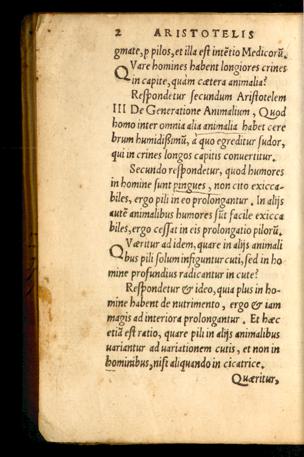 2 ARISTOTELIS
gmate, p pilos, et illa est intētio Medicorū.
QVare homines habent longiores crines
in capite, quàm cætera animalia?
Respondetur secundum Aristotelem
III De Generatione Animalium, Quod
homo inter omnia alia animalia habet cere
brum humidißimũ, à quo egreditur sudor,
qui in crines longos capitis conuertitur.
Secundo respondetur, quod humores
in homine sunt pingues, non cito exicca-
biles, ergo pili in eo prolongantur. In alijs
autē animalibus humores sūt facile exicca
biles, ergo cessat in eis prolongatio pilorū.
QVæritur ad idem, quare in alijs animali
bus pili solum infiguntur cuti, sed in ho
mine profundius radicantur in cute?
Respondetur & ideo, quia plus in ho-
mine habent de nutrimento, ergo & tam
magis ad interiora prolongantur. Et hæc
etiā est ratio, quare pili in alijs animalibus
uariantur ad uariationem cutis, et non in
hominibus, nisi aliquando in cicatrice.
Quæritur,